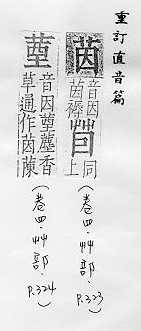 重訂直音篇
茵 音因
茵褥 同
上
(卷四·艸部·P.323)
音因 香
草通作茵蔯
(卷四·艸部·P.324)